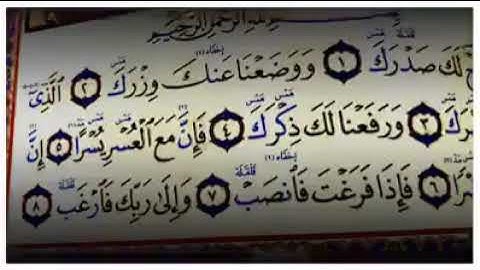 بِسْمِ ٱللَّهِ ٱلرَّحْمَٰنِ ٱلرَّحِيمِ
ح لَكَ صَدْرَكَ ١ وَوَضَعْنَا عَنكَ وِزْرَكَ ٢ ٱلَّذِىٓ
رَكَ ٣ وَرَفَعْنَا لَكَ ذِكْرَكَ ٤ فَإِنَّ مَعَ ٱلْعُسْرِ يُسْرًا ٥ إِنَّ
رًا ٦ فَإِذَا فَرَغْتَ فَٱنصَبْ ٧ وَإِلَىٰ رَبِّكَ فَٱرْغَب ٨